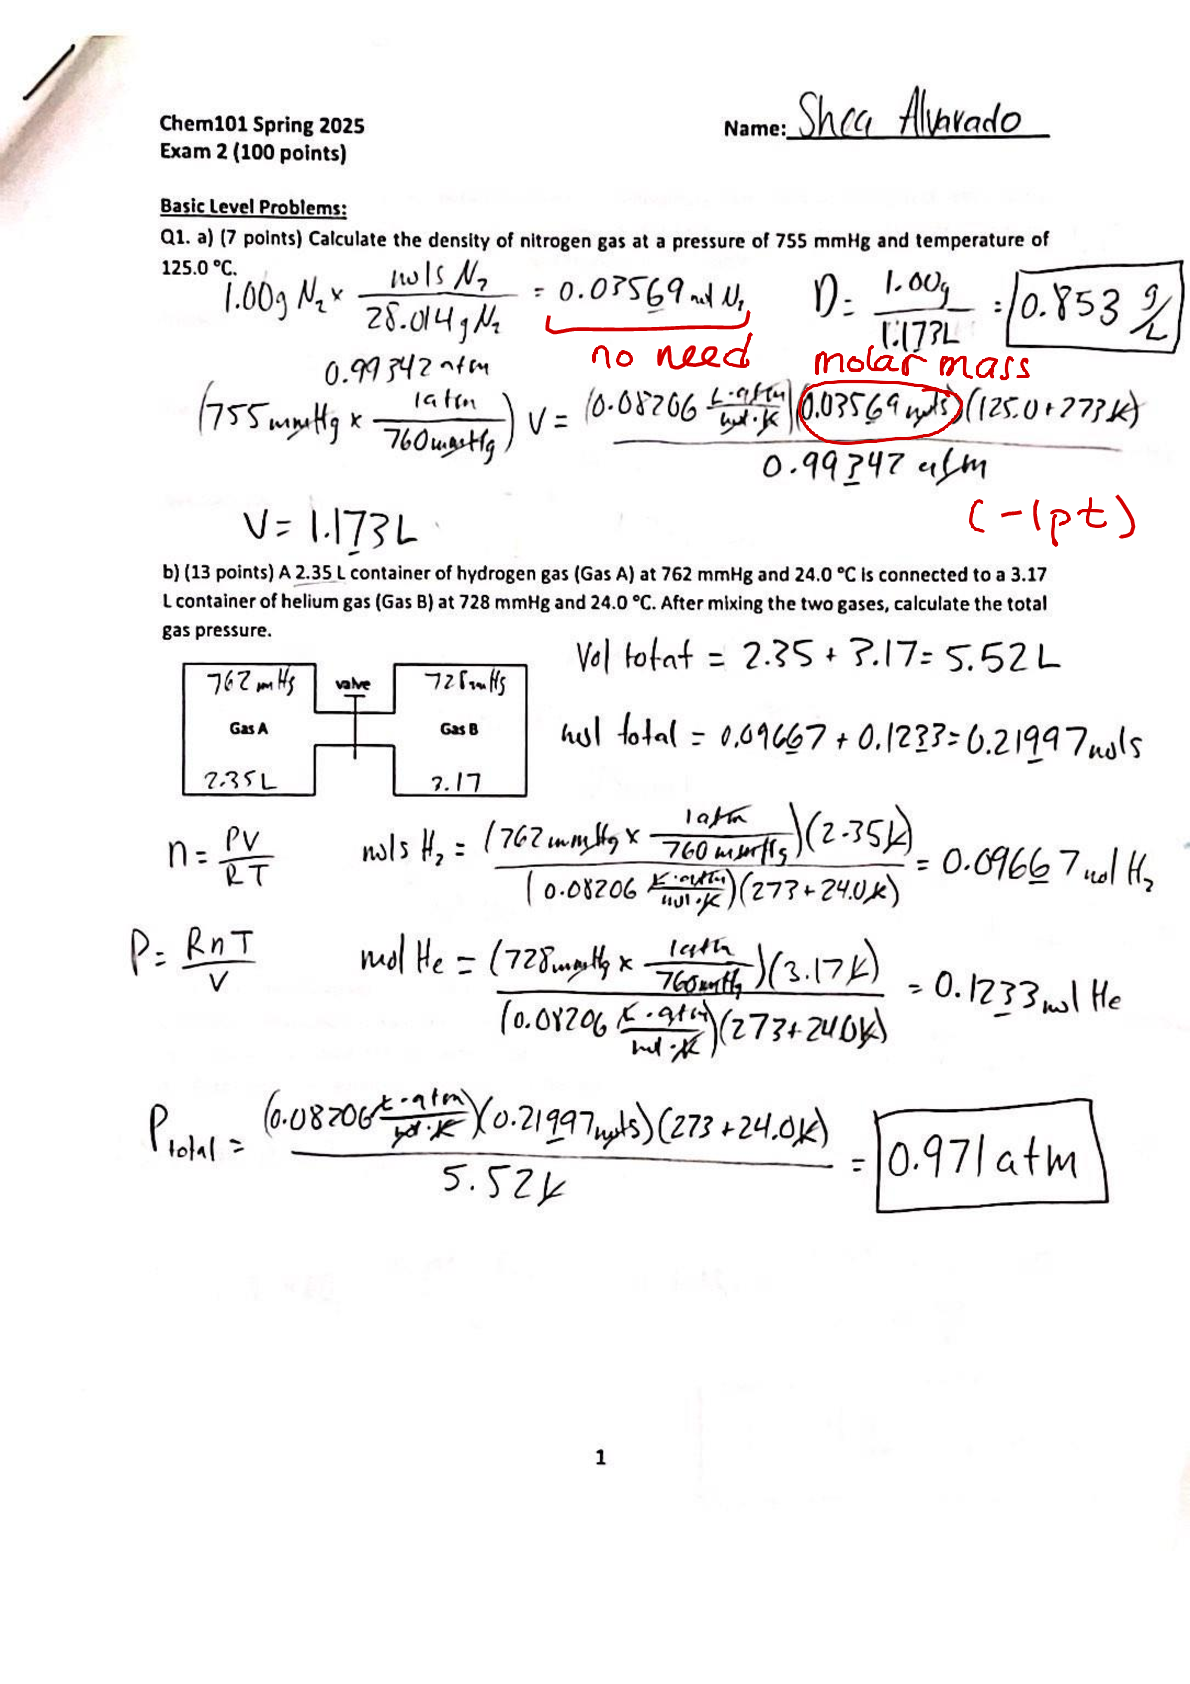 Chem101 Spring 2025
Name: Shea Alvarado
Exam 2 (100 points)
Basic Level Problems:
Q1. a) (7 points) Calculate the density of nitrogen gas at a pressure of 755 mmHg and temperature of
125.0 °C.
1.00g N₂ × mols N₂ / 28.014g N₂ = 0.03569 mol N₂
D = 1.00g / 1.173L = 0.853 g/L
no need
molar mass
0.99342 atm
(755 mmHg × 1atm / 760 mmHg) V = (0.08206 L·atm / mol·K)(0.03569 mols)(125.0+273K) / 0.99342 atm
(-1pt)
V = 1.173L
b) (13 points) A 2.35 L container of hydrogen gas (Gas A) at 762 mmHg and 24.0 °C is connected to a 3.17
L container of helium gas (Gas B) at 728 mmHg and 24.0 °C. After mixing the two gases, calculate the total
gas pressure.
Vol total = 2.35 + 3.17 = 5.52 L
762 mmHg
valve
728 mmHg
Gas A
Gas B
2.35 L
3.17
mol total = 0.09667 + 0.1233 = 0.21997 mols
n = PV / RT
mols H₂ = (762 mmHg × 1atm / 760 mmHg)(2.35L) / (0.08206 L·atm / mol·K)(273+24.0K) = 0.09667 mol H₂
P = RnT / V
mol He = (728 mmHg × 1atm / 760 mmHg)(3.17L) / (0.08206 L·atm / mol·K)(273+24.0K) = 0.1233 mol He
Ptotal = (0.08206 L·atm / mol·K)(0.21997 mols)(273+24.0K) / 5.52L = 0.971 atm
1